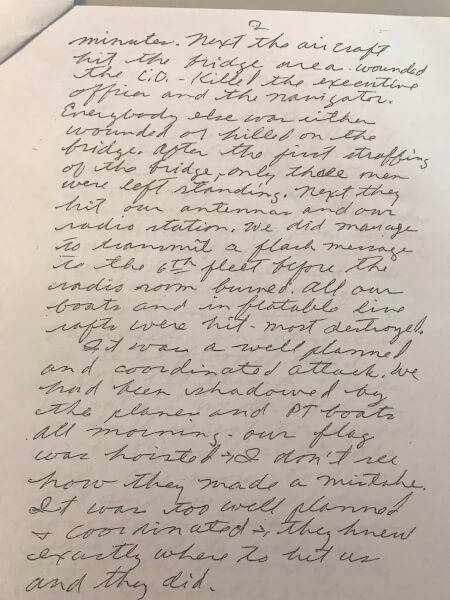 2
minutes. Next the aircraft
hit the bridge area - wounded
the C.O. - Killed the executive
officer and the navigator.
Everybody else was either
wounded or killed on the
bridge. After the first straffing
of the bridge, only three men
were left standing. Next they
hit our antennas and our
radio station. We did manage
to transmit a flash message
to the 6th fleet before the
radio room burned. All our
boats and inflatable live
rafts were hit - most destroyed.
It was a well planned
and coordinated attack. We
had been shadowed by
the planes and PT boats
all morning - our flag
was hoisted & I don't see
how they made a mistake.
It was too well planned
& coordinated & they knew
exactly where to hit us
and they did.